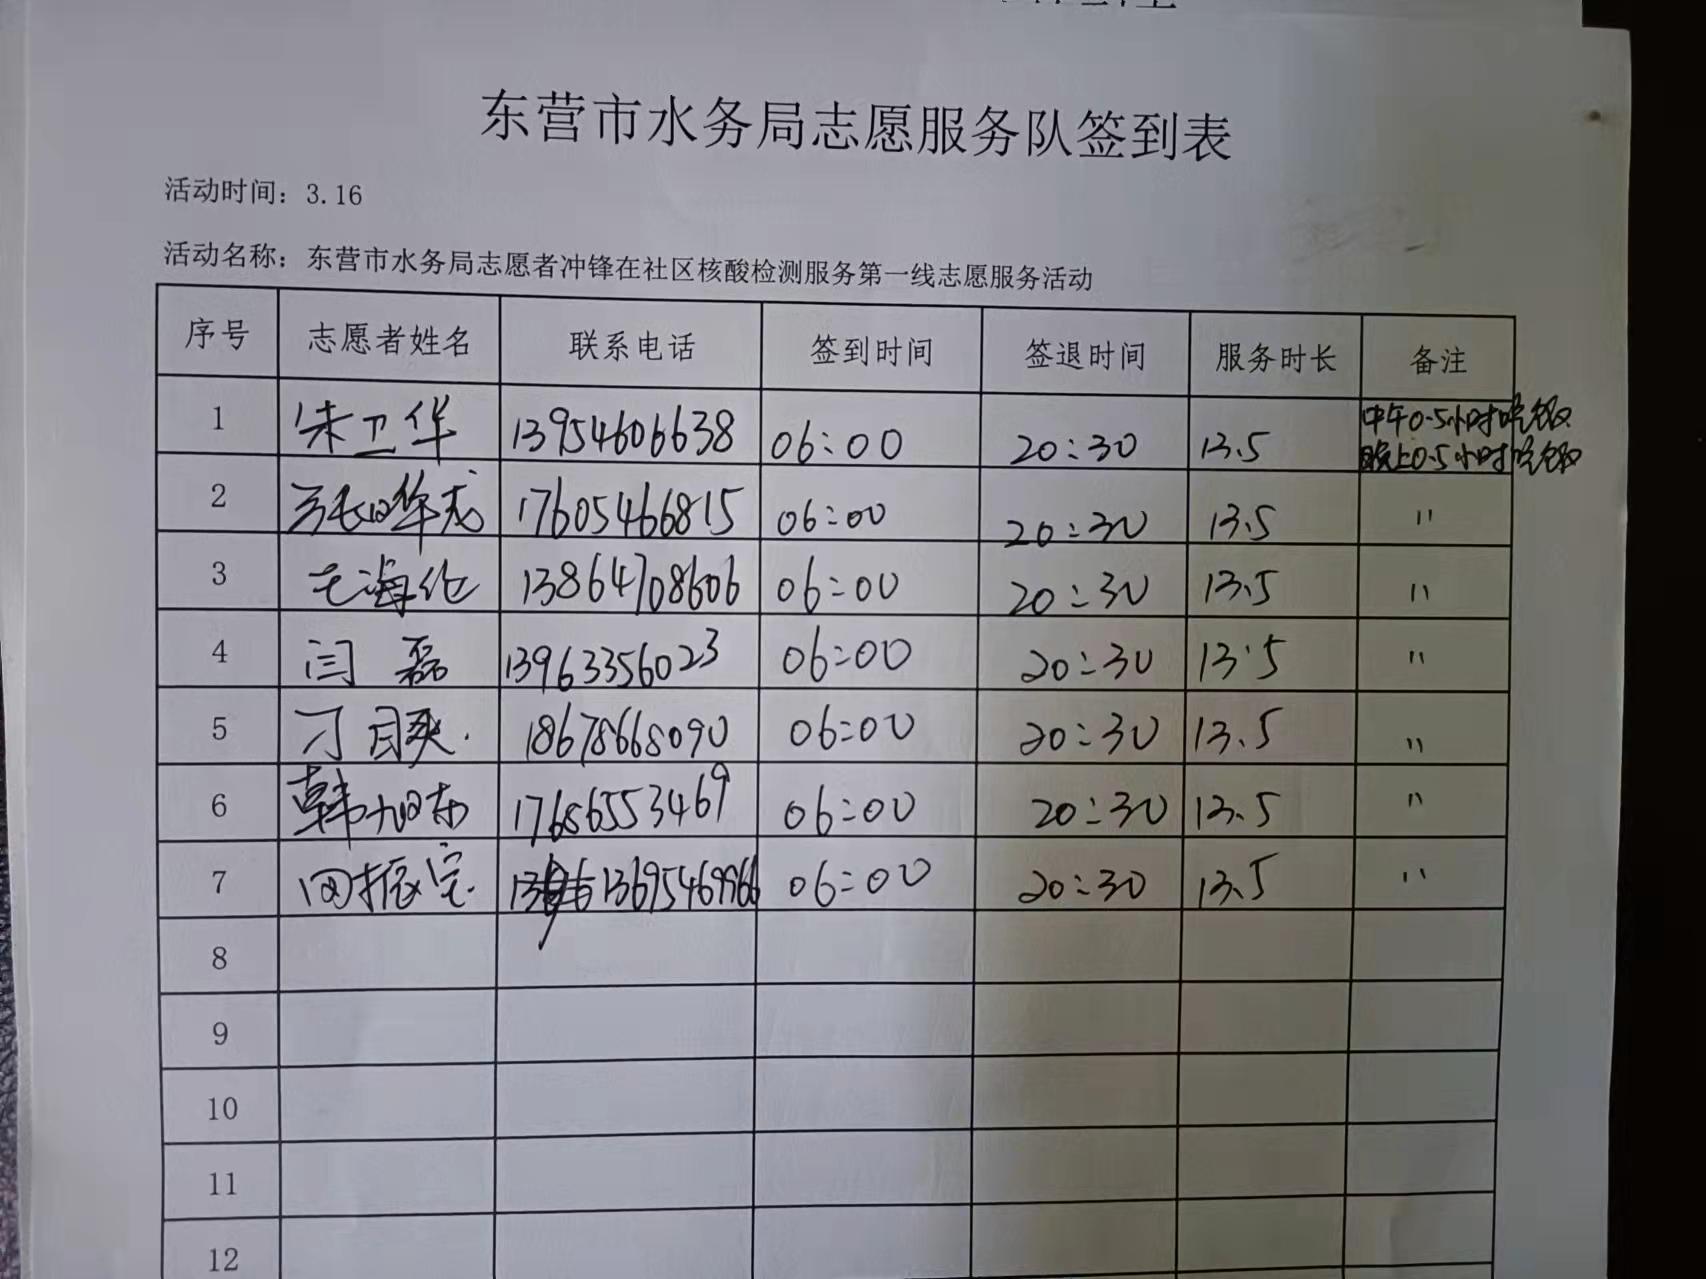 东营市水务局志愿服务队签到表
活动时间：3.16
活动名称：东营市水务局志愿者冲锋在社区核酸检测服务第一线志愿服务活动
序号 志愿者姓名 联系电话 签到时间 签退时间 服务时长 备注
1 朱卫华 13954606638 06:00 20:30 13.5 中午0.5小时吃饭
晚上0.5小时吃饭
2 17605466815 06:00 20:30 13.5 〃
3 海伦 13864708606 06:00 20:30 13.5 〃
4 闫磊 13963356023 06:00 20:30 13.5 〃
5 刁 18678668090 06:00 20:30 13.5 〃
6 韩旭东 17686553469 06:00 20:30 13.5 〃
7 田振宝 13695469966 06:00 20:30 13.5 〃
8
9
10
11
12